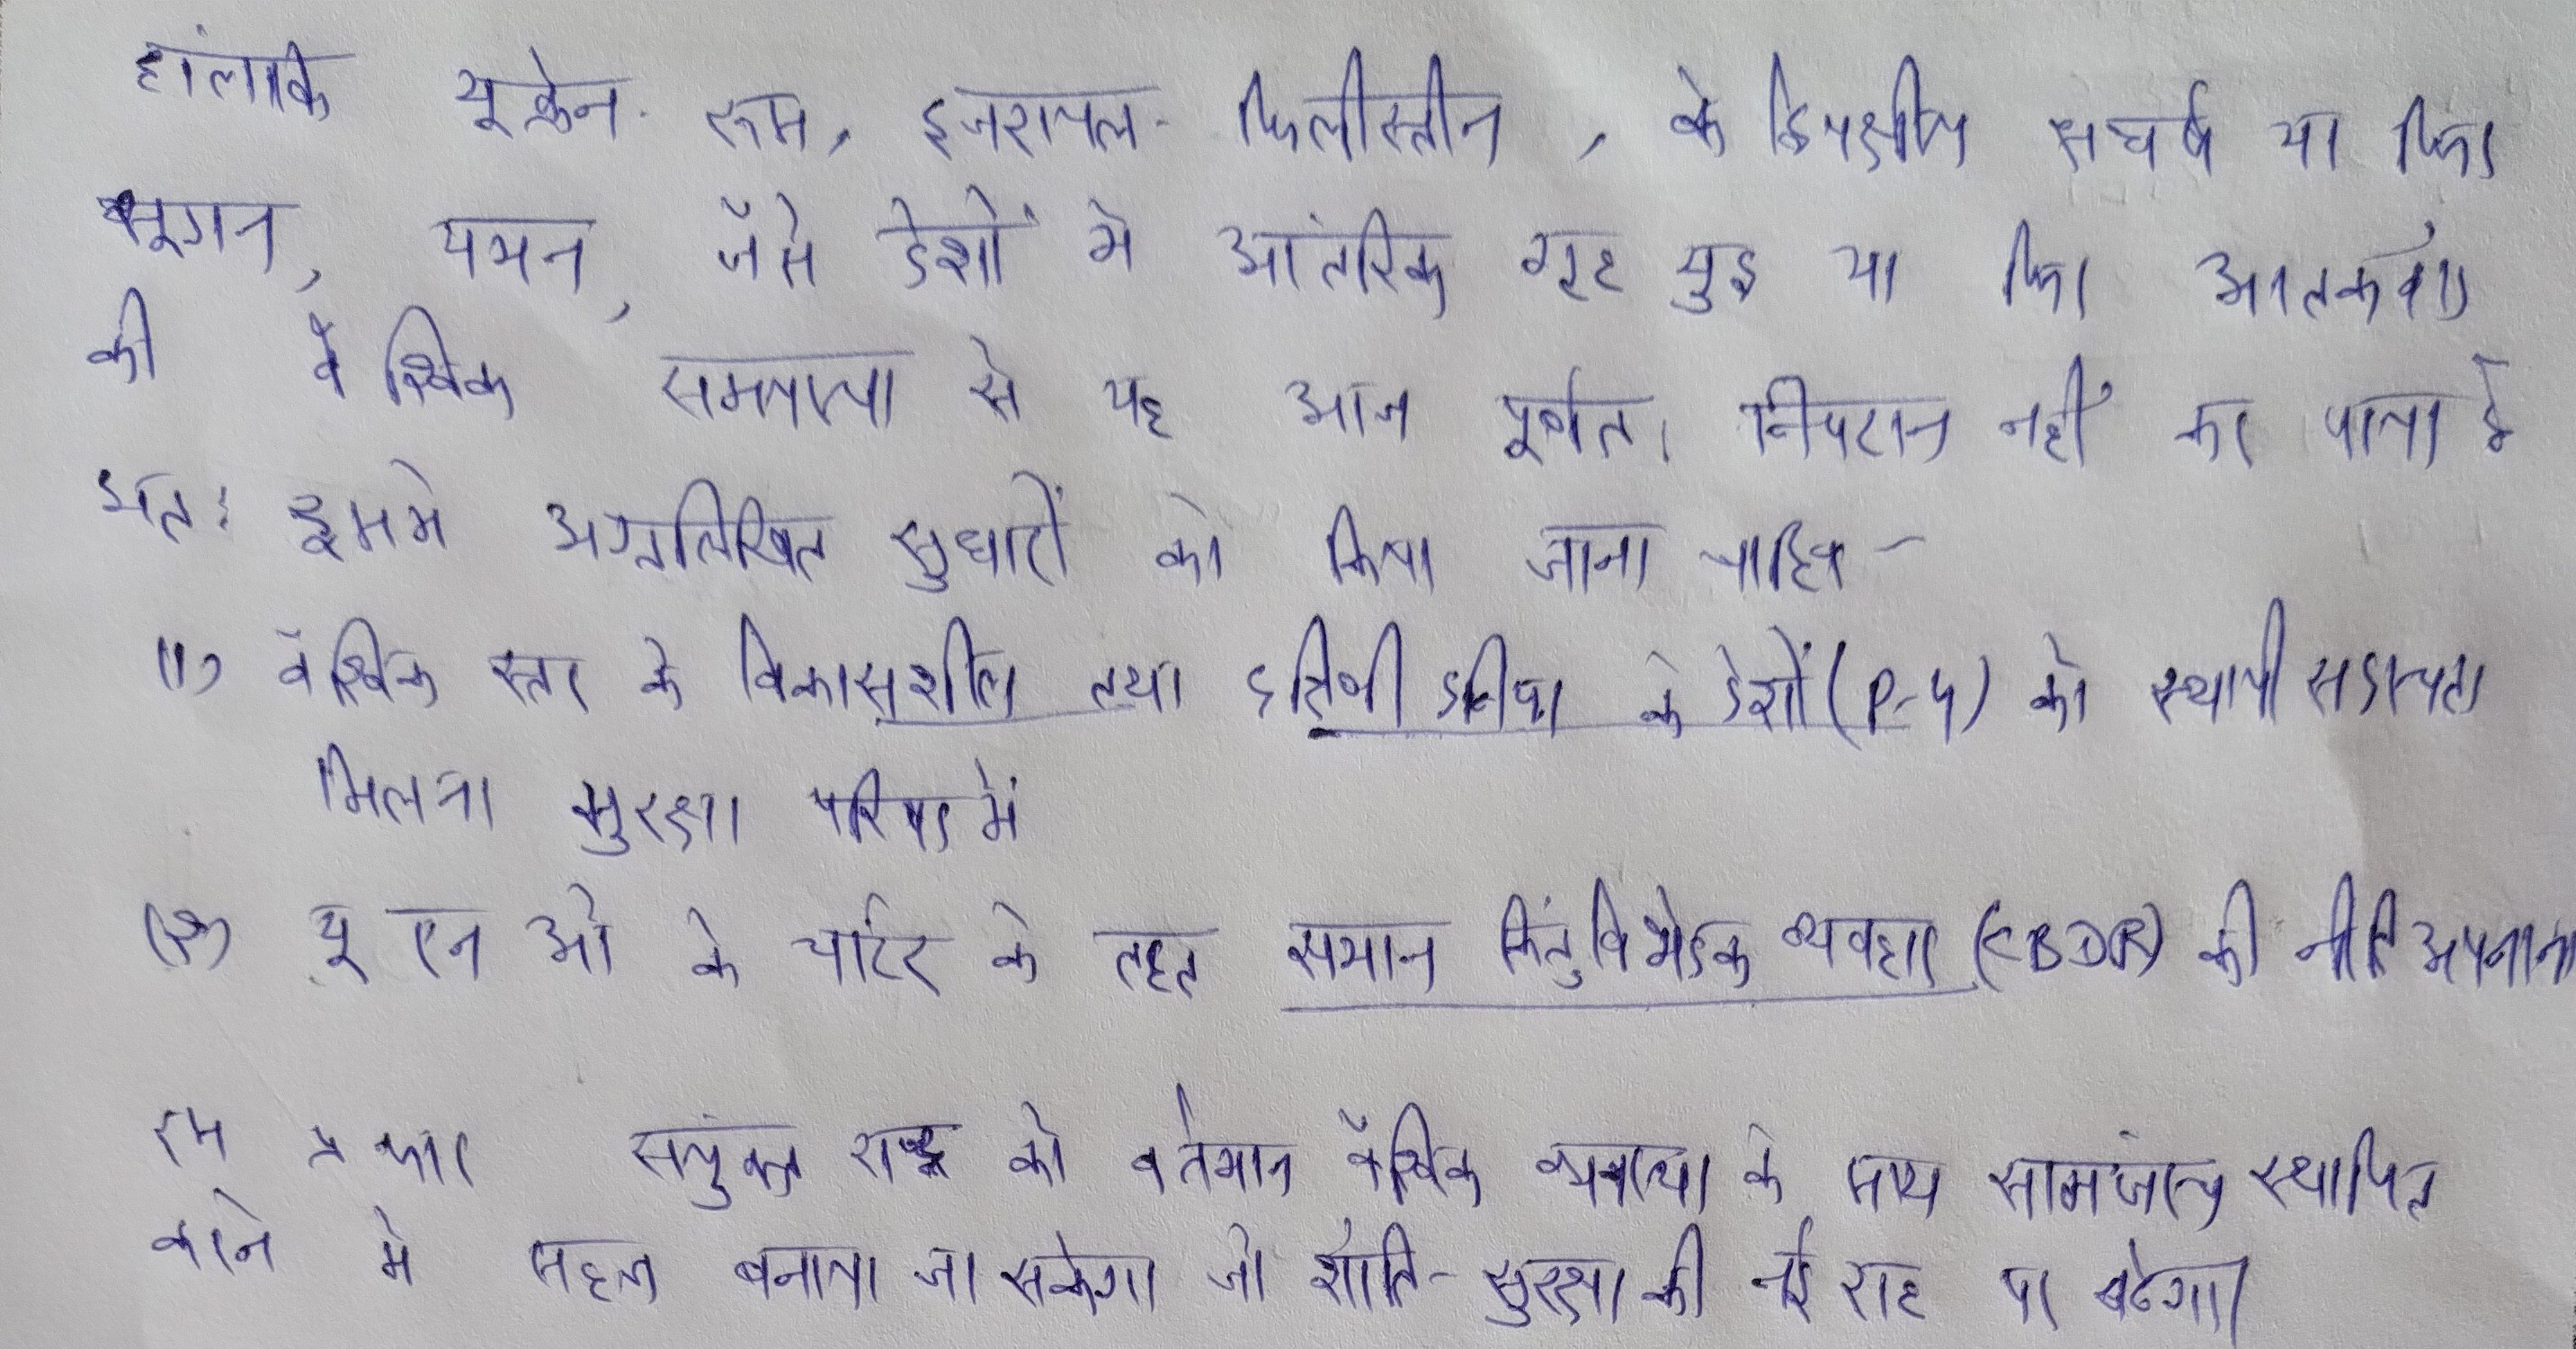 हांलाकि यूक्रेन- रूस, इजरायल- फिलीस्तीन, के द्विपक्षीय संघर्ष या फिर
सूडान, यमन, जैसे देशों मे आंतरिक गृह युद्ध या फिर आतकवाद
की वैश्विक समस्या से यह आज पूर्णतः निपटान नहीं कर पाया है
अतः इसमे अग्रलिखित सुधारों को किया जाना चाहिए -
(1) वैश्विक स्तर के विकासशील तथा तृतीयी दुनिया के देशों (P-4) को स्थायी सदस्यता
मिलना सुरक्षा परिषद में
(2) यू एन ओ के चार्टर के तहत समान किंतु विभेदक व्यवहार (CBDR) की नीति अपनाना
इस प्रकार सयुंक्त राष्ट्र को वर्तमान वैश्विक व्यवस्था के साथ सामंजस्य स्थापित
करने मे सहज बनाया जा सकेगा जो शांति- सुरक्षा की नई राह पर बढेगा।